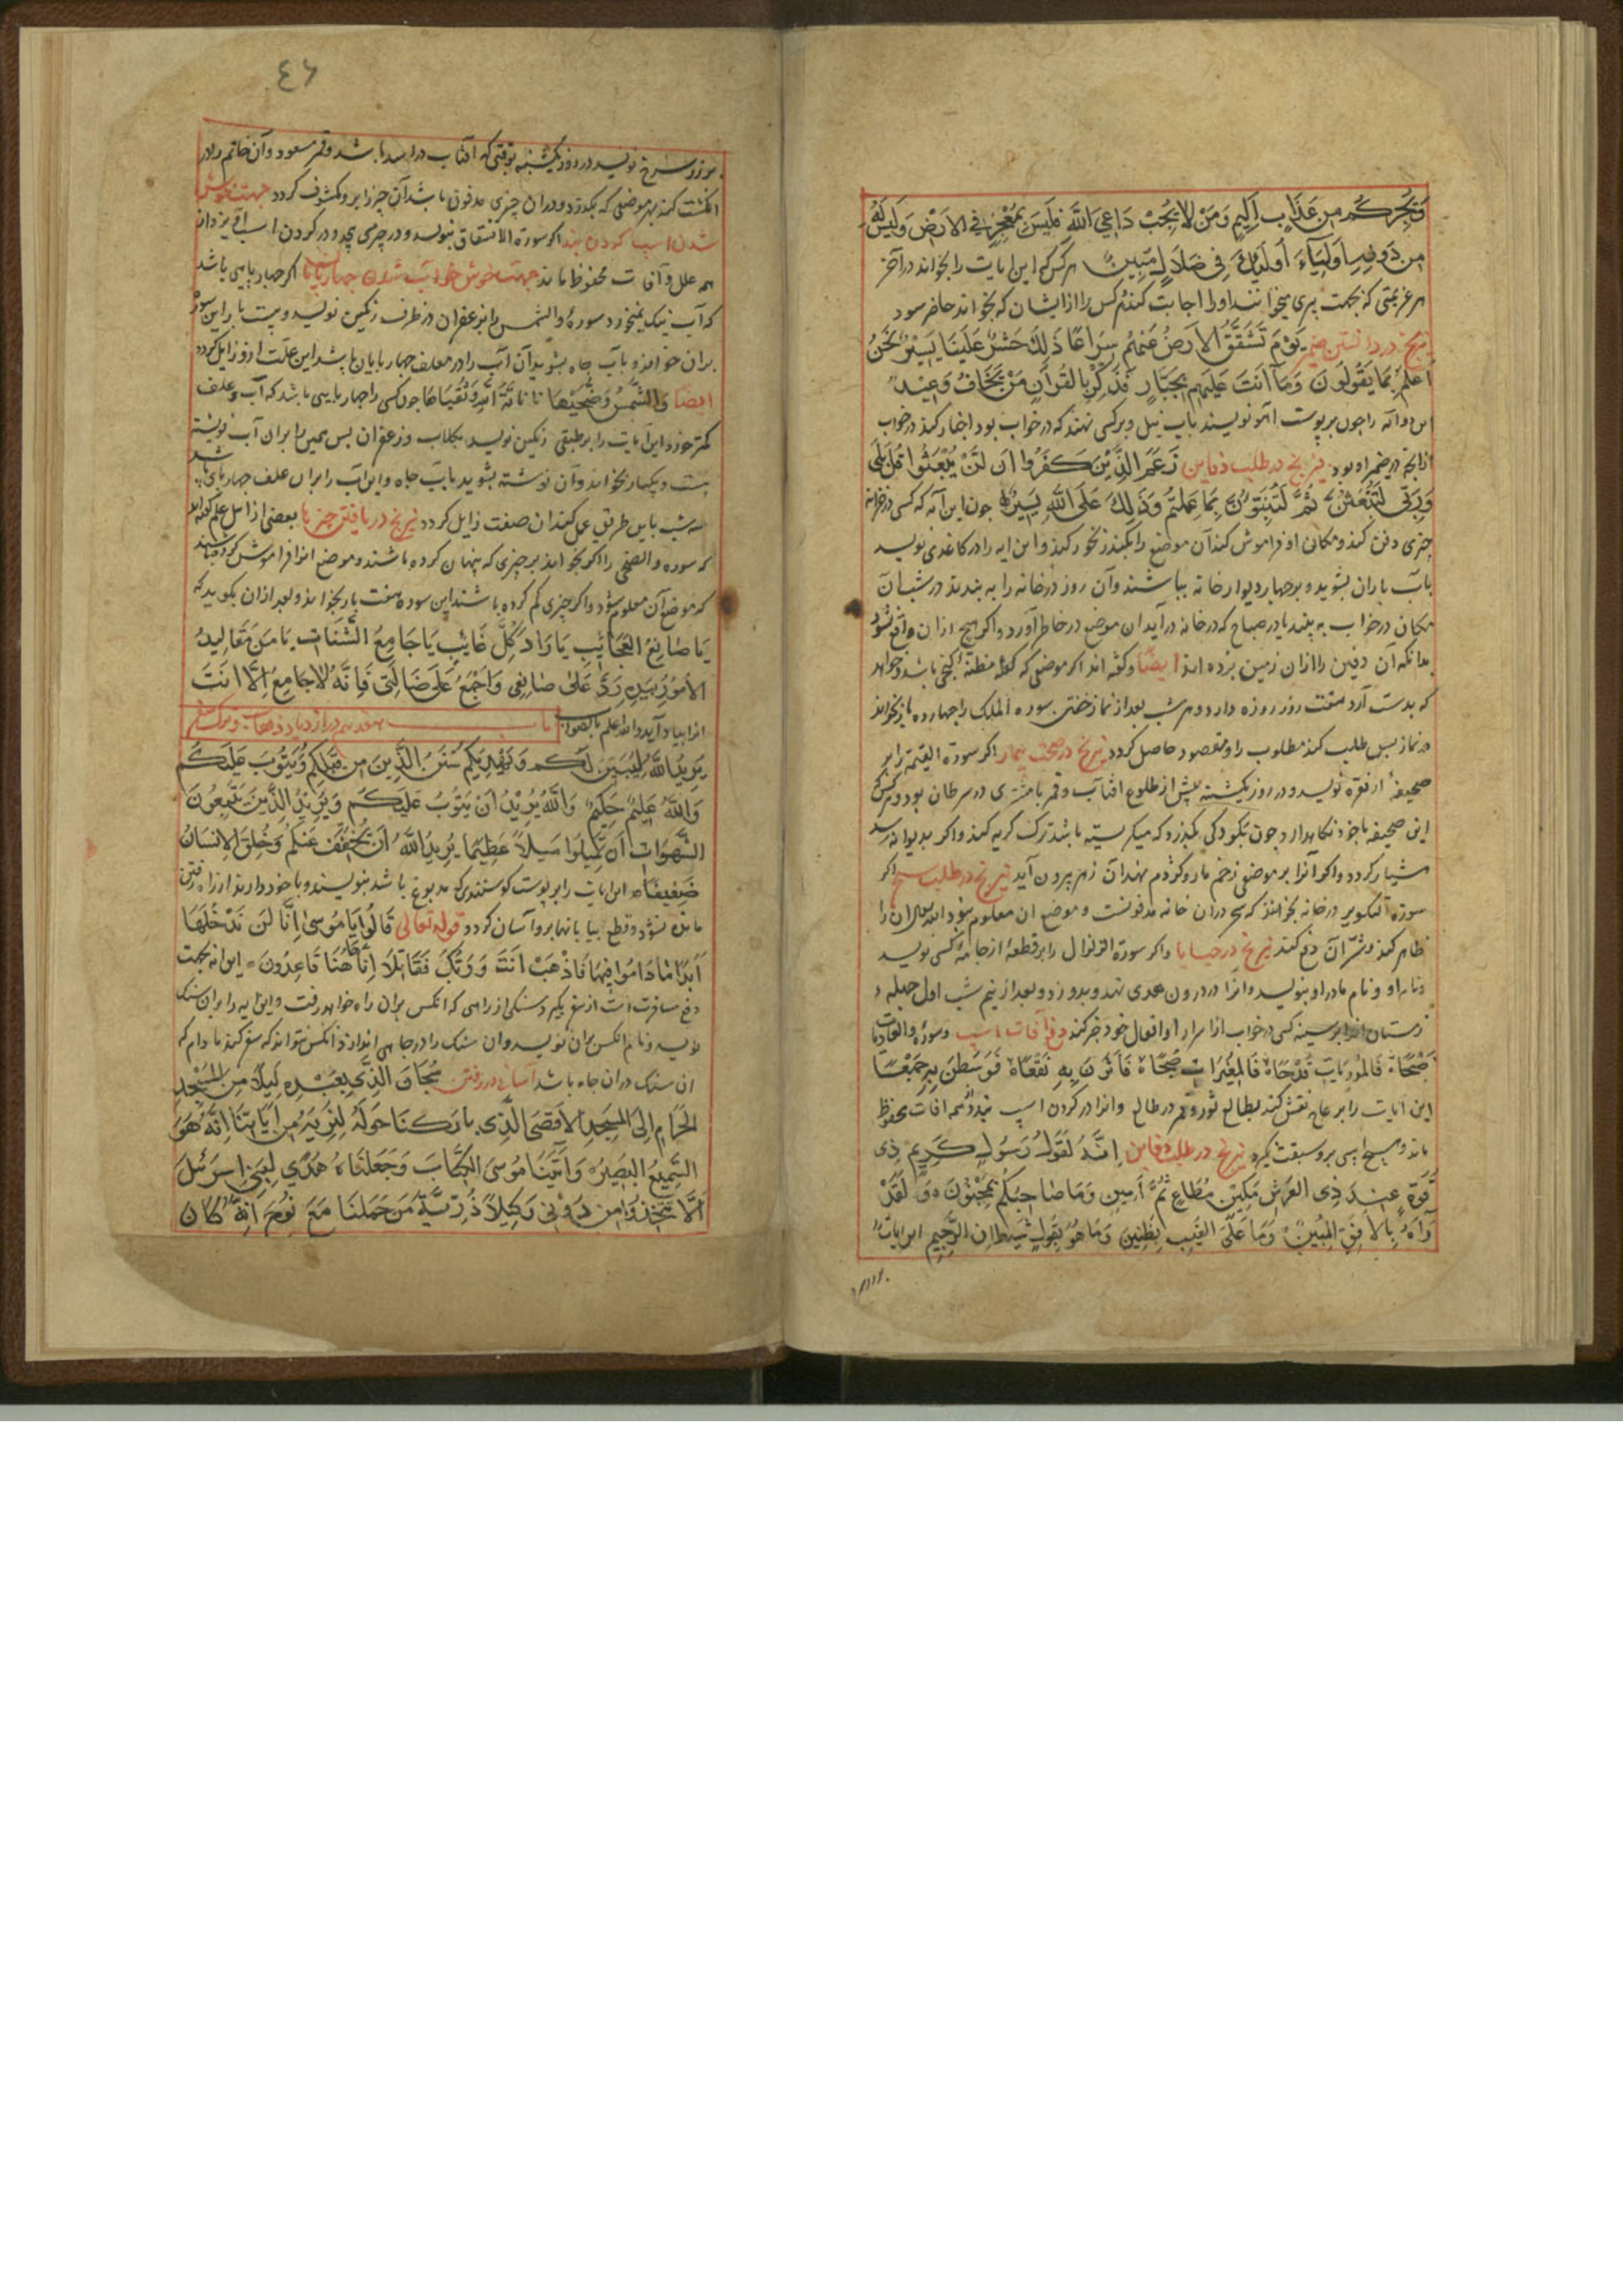 وَيُجِرْكُم مِن عَذَابٍ اَلِيمٍ وَمَنْ لَا يُجِبْ دَاعِيَ اللَّهِ فَلَيسَ بِمُعْجِزٍ فِي الارْضِ وَلَيسَ لَهُ
مِن دُونِهِ اَولِيَآءَ اُولَئِكَ فِي ضَلَالٍ مُبِينٍ هر کس که این ایات را بخواند در آخر
هر عزیمتی که بجهت پری میخوانند او را اجابت کنند هر کس را از ایشان که بخواند حاضر سود
نیرنج در دانستن ضمیر يَوْمَ تَشَقَّقُ الاَرضُ عَنهُم سِرَاعًا ذَلِكَ حَشْرٌ عَلَينَا يَسِيرٌ نَحْنُ
اَعلَمُ بِمَا يَقُولُونَ وَمَا اَنتَ عَلَيهِم بِجَبَّارٍ فَذَكِّرْ بِالقُرآنِ مَنْ يَخَافُ وَعِيدِ
این دو آیه را چون بر پوست آهو نویسند باب نیل و بر کسی نهند که در خواب بود اخبار کند در خواب
از انچه در ضمیر او بود نیرنج در طلب دفاین زَعَمَ الَّذِينَ كَفَرُوا اَن لَنْ يُبْعَثُوا قُلْ بَلَى
وَرَبِّي لَتُبْعَثُنَّ ثُمَّ لَتُنَبَّؤُنَّ بِمَا عَمِلتُم وَذَلِكَ عَلَى اللَّهِ يَسِيرٌ جون این آیه که کسی در خزانه
چیزی دفن کند و مکان او فراموش کند آن موضع را بکندر بخور کند و این ایه را در کاغدی نویسد
باب باران بشوید و بر چهار دیوار خانه بپاشند و آن روز در خانه را به بندند در شب آن
مکان در خواب به بیند یا در صباح که در خانه در آید ان موضع در خاطر آورد و اکر هیچ ازان واقع نشود
بدانکه آن دفین را ازان زمین برده اند ایضًا و گفته اند اکر موضعی که مظنه گنجی باشد و خواهد
که بدست آرد هفت روز روزه دارد و هر شب بعد از نماز خفتن سوره الملک را چهارده بار بخواند
در نماز بس طلب کند مطلوب را و مقصود حاصل کردد نیرنج در صحت بیمار اکر سورة القیمة را بر
صحیفه از نقره نویسد و در روز یکشنبه پیش از طلوع افتاب و قمر با مشتری در سرطان بود و هر کس
این صحیفه با خود نکاهدارد چون بکودکی بکذرد که میکریسته باشد ترک کریه کند و اکر بدیوانه رسد
هشیار کردد و اکر آنرا بر موضع زخم مار و کژدم نهند آن زهر بیرون آید نیرنج در طلب سحر اکر
سورة التکویر در خانه بخوانند که سحر دران خانه مدفونست و موضع ان معلوم نبود الله تعالی ان را
ظاهر کند و شر آن دفع کند نیرنج در حسابها و اکر سورة الزلزال را بر قطعه از جامه کسی نویسد
و نام او و نام مادر او بنویسد و انرا در درون هدی نهد و بدوزد و بعد از نیم شب اول جمله
زمستان انرا بر سینه کسی در خواب از اسرار او افعال خود خبر کند دفع آفات اسب و سورة والعادیات
ضَبْحًا فَالمُورِيَاتِ قَدْحًا فَالمُغِيرَاتِ صُبْحًا فَاَثَرْنَ بِهِ نَقْعًا فَوَسَطْنَ بِهِ جَمْعًا
این آیات را بر عاج نقش کند بطالع ثور و قمر در طالع و انرا در کردن اسب بندد از همه افات محفوظ
ماند و هیچ اسبی برو سبقت نگیرد نیرنج در طلب دفاین اِنَّهُ لَقَولُ رَسُولٍ كَرِيمٍ ذِي
قُوَّةٍ عِنْدَ ذِي العَرشِ مَكِينٍ مُطَاعٍ ثَمَّ اَمِينٍ وَمَا صَاحِبُكُم بِمَجْنُونٍ وَلَقَدْ
رَآهُ بِالاُفُقِ المُبِينِ وَمَا عَلَى الغَيبِ بِظَنِينٍ وَمَا هُوَ بِقَولِ شَيطَانٍ الرَّجِيمِ این ایات
٤٦
سرخ نویسد در روز یکشنبه بوقتی که آفتاب در اسد باشد و قمر مسعود و آن خاتم را در
انکشت کند بهر موضعی که بکذرد و دران چیزی مدفون باشد آن چیز را برو مکشوف کردد جهت خوش
شدن اسب کردن بند اکر سورة الانشقاق بنویسد و در چرمی پیچد و در کردن اسب آویزد از
همه علل و آفات محفوظ ماند جهت خوش خوار شدن چهارپایان اکر چهارپایی باشد
که آب نیک نمیخورد سورة والشمس را بزعفران در ظرف رنگین نویسد و بیست بار این سوره
بران خوانند و بآب چاه بشوید آن آب را در معلف چهارپایان پاشد این علت ازو زایل کردد
ایضًا وَالشَّمسِ وَضُحَيهَا تا نَاقَةَ اللَّهِ وَسُقيَاهَا جون کسی را چهارپایی باشد که آب و علف
کمتر خورد این آیات را بر طبقی رنگین نویسد بکلاب و زعفران بس همین را بران آب نوشته
بیست و یکبار بخواند و آن نوشته بشوید باب چاه و این آب را بران علف چهارپای پاشد
سه شب باین طریق عمل کند ان صفت زایل کردد نیرنج در یافتن چیزها بعضی از اهل علم گفته اند
که سوره والضحی را اکر بخوانند بر چیزی که پنهان کرده باشند و موضع انرا فراموش کرده باشند
که موضع آن معلوم شود و اکر چیزی کم کرده باشند این سوره هفت بار بخوانند و بعد ازان بکوید که
يَا صَانِعَ العَجَائِبِ يَا رَادَّ كُلِّ غَائِبٍ يَا جَامِعَ الشَّتَاتِ يَا مَن مَقَالِيدُ
الاُمُورِ بِيَدِهِ رُدَّ عَلَىَّ ضَايِعِي وَاجْمَعْ عَلَىَّ ضَالَّتِي فَاِنَّهُ لَا جَامِعَ اِلَّا اَنتَ
انرا بیاد آید والله اعلم بالصواب باب در ازدیاد
يُرِيدُ اللَّهُ لِيُبَيِّنَ لَكُم وَيَهْدِيَكُم سُنَنَ الَّذِينَ مِن قَبْلِكُم وَيَتُوبَ عَلَيكُم
وَاللَّهُ عَلِيمٌ حَكِيمٌ وَاللَّهُ يُرِيدُ اَنْ يَتُوبَ عَلَيكُم وَيُرِيدُ الَّذِينَ يَتَّبِعُونَ
الشَّهَوَاتِ اَن تَمِيلُوا مَيلًا عَظِيمًا يُرِيدُ اللَّهُ اَنْ يُخَفِّفَ عَنكُم وَخُلِقَ الاِنسَانُ
ضَعِيفًا این ایات را بر پوست کوسفندی که مدبوغ باشد بنویسند و با خود دارند از راه رفتن
مانده نشود و قطع بیابانها برو آسان کردد قوله تعالی قَالُوا يَا مُوسَى اِنَّا لَن نَدْخُلَهَا
اَبَدًا مَا دَامُوا فِيهَا فَاذْهَبْ اَنتَ وَرَبُّكَ فَقَاتِلَا اِنَّا هَهُنَا قَاعِدُونَ این ایه بجهت
دفع مسافرت است از سفر بگیرد سنکی از راهی که انکس بران راه خواهد رفت و این ایه را بران سنک
نویسد و نام انکس بران نویسد و ان سنک را در چاهی اندازد انکس نتواند که سفر کند مادام که
ان سنک دران چاه باشد آسانی در رفتن سُبحَانَ الَّذِي اَسْرَى بِعَبْدِهِ لَيلًا مِنَ المَسجِدِ
الحَرَامِ اِلَى المَسجِدِ الاَقصَى الَّذِي بَارَكنَا حَولَهُ لِنُرِيَهُ مِن آيَاتِنَا اِنَّهُ هُوَ
السَّمِيعُ البَصِيرُ وَآتَينَا مُوسَى الكِتَابَ وَجَعَلنَاهُ هُدًى لِبَنِي اِسرَئِيلَ
اَلَّا تَتَّخِذُوا مِن دُونِي وَكِيلًا ذُرِّيَّةَ مَن حَمَلنَا مَعَ نُوحٍ اِنَّهُ كَانَ